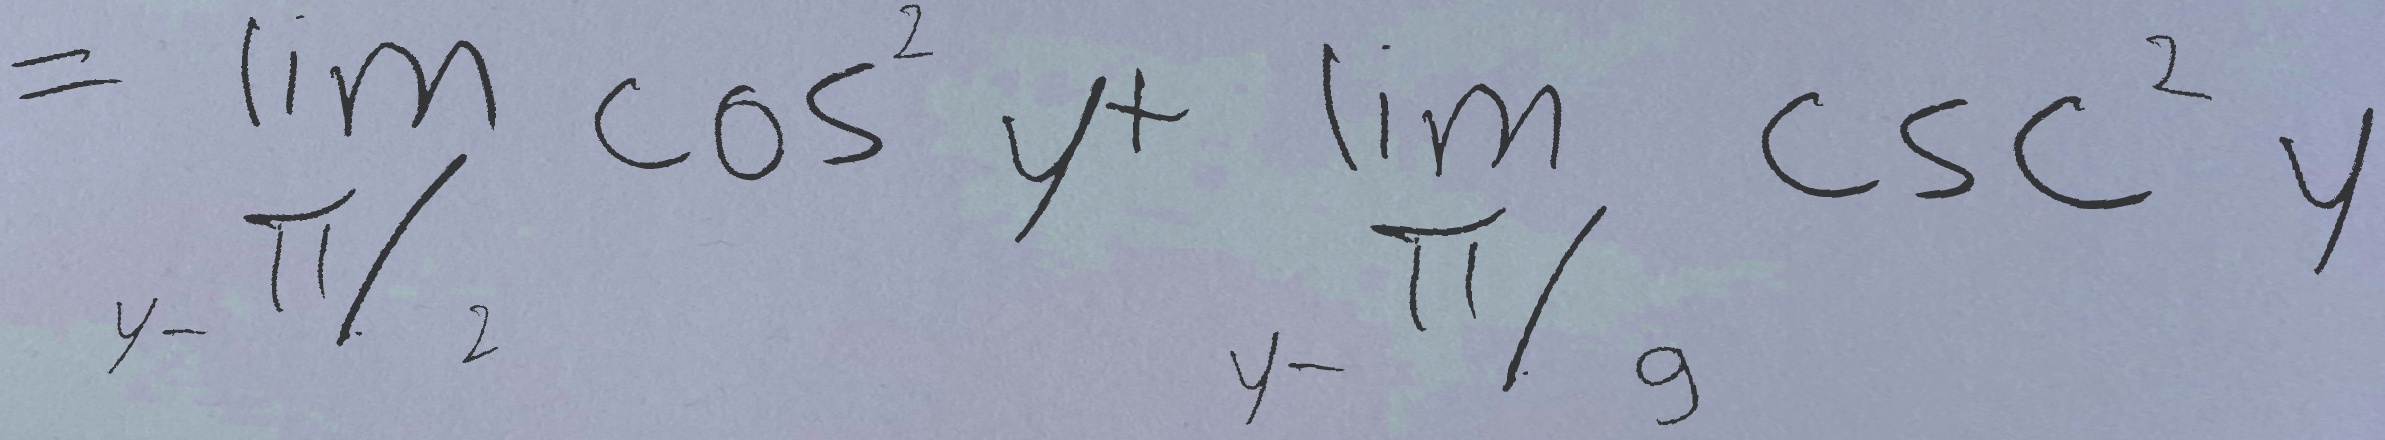 = lim y-π/2 cos² y + lim y-π/9 csc² y